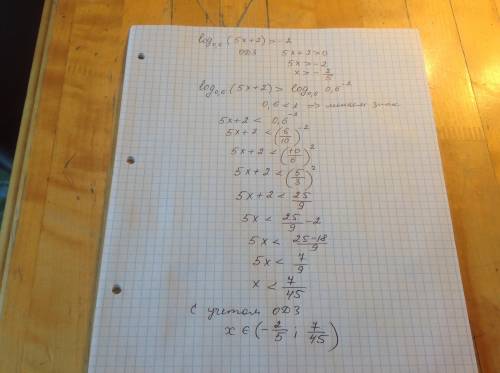 log₀,₆(5x+2) > -2
ОДЗ 5x+2>0
5x>-2
x>-2/5
log₀,₆(5x+2) > log₀,₆ 0,6⁻²
0,6<1 => меняем знак
5x+2 < 0,6⁻²
5x+2 < (6/10)⁻²
5x+2 < (10/6)²
5x+2 < (5/3)²
5x+2 < 25/9
5x < 25/9 - 2
5x < 25-18/9
5x < 7/9
x < 7/45
С учетом ОДЗ
x ∈ (-2/5 ; 7/45)